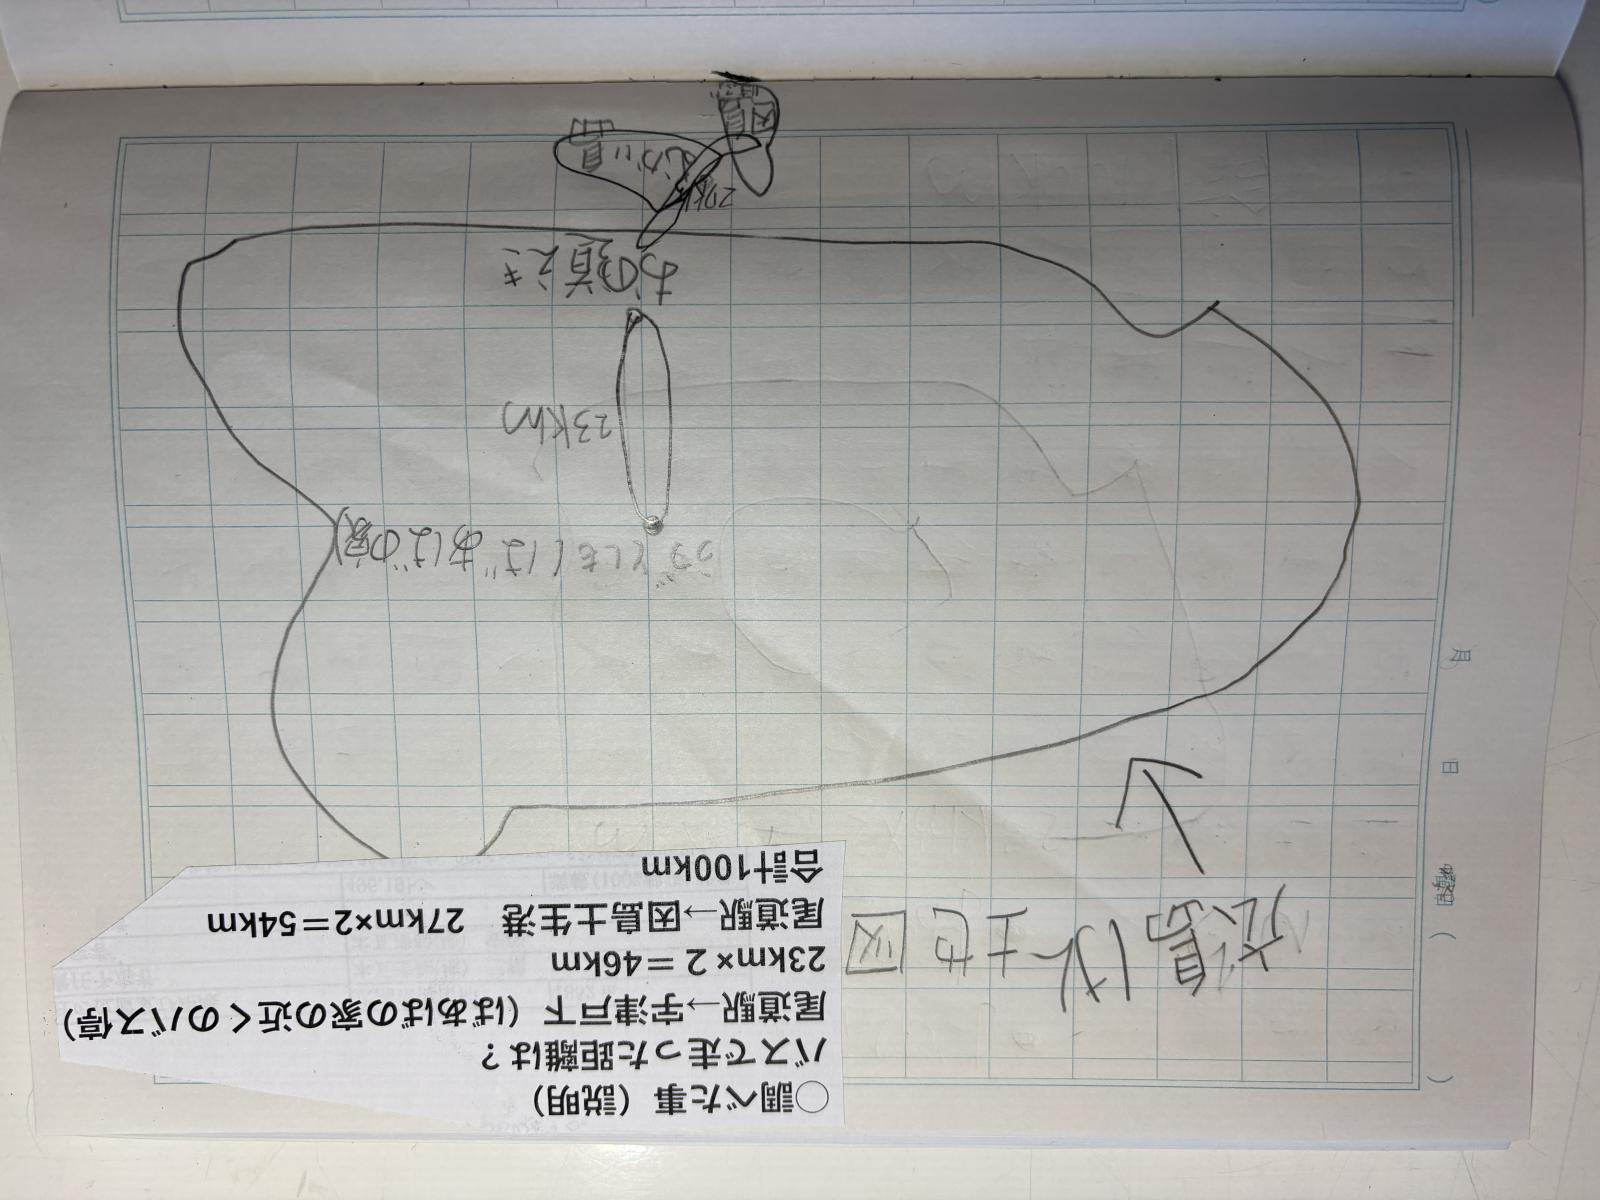 ○調べた事（説明）
バスで走った距離は？
尾道駅→宇津戸下（ばあばの家の近くのバス停）
23km×2＝46km
尾道駅→因島土生港　27km×2＝54km
合計100km
広島けん地図
ばあばの家)
23km
おの道えき
27km
むかい島
因島
月
日
曜日（
）